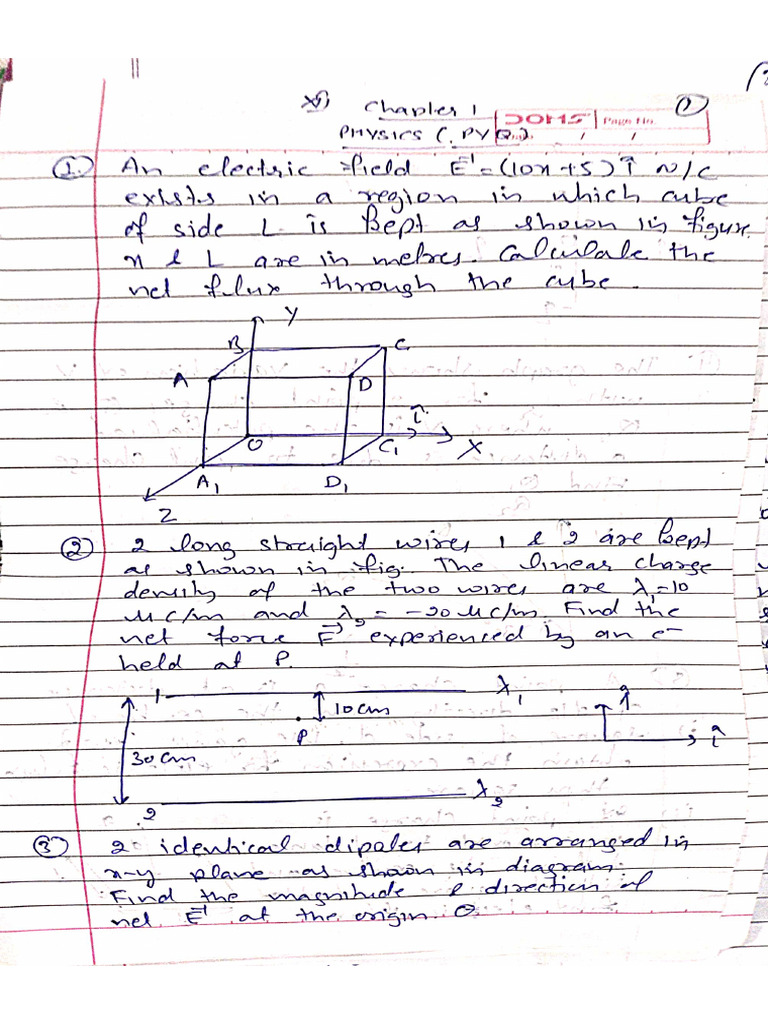 XII Chapter 1 ①
Physics (PYQ) DOMS Page No.
/ /
① An electric field E⃗ = (10x+5) î N/C
exists in a region in which cube
of side L is kept as shown in figure.
x & L are in metres. Calculate the
net flux through the cube.
Y
B C
A D
î
O C₁ X
A₁ D₁
Z
② 2 long straight wires 1 & 2 are kept
as shown in fig. The linear charge
density of the two wires are λ₁=10
μC/m and λ₂ = -20 μC/m. Find the
net force F⃗ experienced by an e⁻
held at P.
1 λ₁
10cm ĵ
P î
30cm
2 λ₂
③ 2 identical dipoles are arranged in
x-y plane as shown in diagram.
Find the magnitude & direction of
net E⃗ at the origin O.